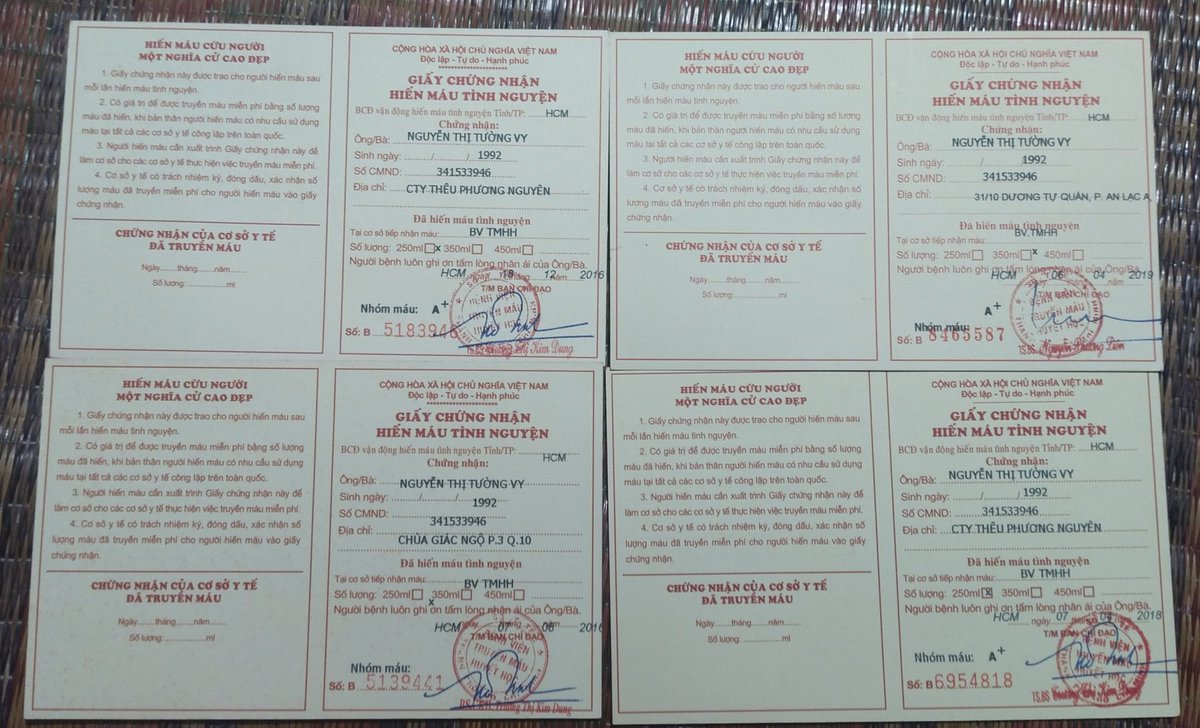 HIẾN MÁU CỨU NGƯỜI
MỘT NGHĨA CỬ CAO ĐẸP
1. Giấy chứng nhận này được trao cho người hiến máu sau
mỗi lần hiến máu tình nguyện.
2. Có giá trị để được truyền máu miễn phí bằng số lượng
máu đã hiến, khi bản thân người hiến máu có nhu cầu sử dụng
máu tại tất cả các cơ sở y tế công lập trên toàn quốc.
3. Người hiến máu cần xuất trình Giấy chứng nhận này để
làm cơ sở cho các cơ sở y tế thực hiện việc truyền máu miễn phí.
4. Cơ sở y tế có trách nhiệm ký, đóng dấu, xác nhận số
lượng máu đã truyền miễn phí cho người hiến máu vào giấy
chứng nhận.
CHỨNG NHẬN CỦA CƠ SỞ Y TẾ
ĐÃ TRUYỀN MÁU
Ngày.......tháng.......năm.......
Số lượng: ..............ml
CỘNG HÒA XÃ HỘI CHỦ NGHĨA VIỆT NAM
Độc lập - Tự do - Hạnh phúc
GIẤY CHỨNG NHẬN
HIẾN MÁU TÌNH NGUYỆN
BCĐ vận động hiến máu tình nguyện Tỉnh/TP: HCM
Chứng nhận:
Ông/Bà: NGUYỄN THỊ TƯỜNG VY
Sinh ngày: / / 1992
Số CMND: 341533946
Địa chỉ: CTY THÊU PHƯƠNG NGUYÊN
Đã hiến máu tình nguyện
Tại cơ sở tiếp nhận máu: BV TMHH
Số lượng: 250ml x 350ml 450ml
Người bệnh luôn ghi ơn tấm lòng nhân ái của Ông/Bà.
HCM 12 2016
T/M BAN CHỈ ĐẠO
BỆNH VIỆN
TRUYỀN MÁU
HUYẾT HỌC
Nhóm máu: A+
Số: B
HIẾN MÁU CỨU NGƯỜI
MỘT NGHĨA CỬ CAO ĐẸP
1. Giấy chứng nhận này được trao cho người hiến máu sau
mỗi lần hiến máu tình nguyện.
2. Có giá trị để được truyền máu miễn phí bằng số lượng
máu đã hiến, khi bản thân người hiến máu có nhu cầu sử dụng
máu tại tất cả các cơ sở y tế công lập trên toàn quốc.
3. Người hiến máu cần xuất trình Giấy chứng nhận này để
làm cơ sở cho các cơ sở y tế thực hiện việc truyền máu miễn phí.
4. Cơ sở y tế có trách nhiệm ký, đóng dấu, xác nhận số
lượng máu đã truyền miễn phí cho người hiến máu vào giấy
chứng nhận.
CHỨNG NHẬN CỦA CƠ SỞ Y TẾ
ĐÃ TRUYỀN MÁU
Ngày.......tháng.......năm.......
Số lượng: ..............ml
CỘNG HÒA XÃ HỘI CHỦ NGHĨA VIỆT NAM
Độc lập - Tự do - Hạnh phúc
GIẤY CHỨNG NHẬN
HIẾN MÁU TÌNH NGUYỆN
BCĐ vận động hiến máu tình nguyện Tỉnh/TP: HCM
Chứng nhận:
Ông/Bà: NGUYỄN THỊ TƯỜNG VY
Sinh ngày: / / 1992
Số CMND: 341533946
Địa chỉ: 31/10 DƯƠNG TỰ QUÁN, P. AN LẠC A,
Đã hiến máu tình nguyện
Tại cơ sở tiếp nhận máu: BV TMHH
Số lượng: 250ml 350ml x 450ml
Người bệnh luôn ghi ơn tấm lòng nhân ái của Ông/Bà.
HCM 06 04 2019
T/M BAN CHỈ ĐẠO
BỆNH VIỆN
TRUYỀN MÁU
HUYẾT HỌC
A+
Nhóm máu:
Số: B 8465587
HIẾN MÁU CỨU NGƯỜI
MỘT NGHĨA CỬ CAO ĐẸP
1. Giấy chứng nhận này được trao cho người hiến máu sau
mỗi lần hiến máu tình nguyện.
2. Có giá trị để được truyền máu miễn phí bằng số lượng
máu đã hiến, khi bản thân người hiến máu có nhu cầu sử dụng
máu tại tất cả các cơ sở y tế công lập trên toàn quốc.
3. Người hiến máu cần xuất trình Giấy chứng nhận này để
làm cơ sở cho các cơ sở y tế thực hiện việc truyền máu miễn phí.
4. Cơ sở y tế có trách nhiệm ký, đóng dấu, xác nhận số
lượng máu đã truyền miễn phí cho người hiến máu vào giấy
chứng nhận.
CHỨNG NHẬN CỦA CƠ SỞ Y TẾ
ĐÃ TRUYỀN MÁU
Ngày.......tháng.......năm.......
Số lượng: ..............ml
CỘNG HÒA XÃ HỘI CHỦ NGHĨA VIỆT NAM
Độc lập - Tự do - Hạnh phúc
GIẤY CHỨNG NHẬN
HIẾN MÁU TÌNH NGUYỆN
BCĐ vận động hiến máu tình nguyện Tỉnh/TP: HCM
Chứng nhận:
Ông/Bà: NGUYỄN THỊ TƯỜNG VY
Sinh ngày: / / 1992
Số CMND: 341533946
Địa chỉ: CHÙA GIÁC NGỘ P.3 Q.10
Đã hiến máu tình nguyện
Tại cơ sở tiếp nhận máu: BV TMHH
Số lượng: 250ml x 350ml 450ml
Người bệnh luôn ghi ơn tấm lòng nhân ái của Ông/Bà.
HCM 07 08 2016
T/M BAN CHỈ ĐẠO
BỆNH VIỆN
TRUYỀN MÁU
HUYẾT HỌC
Nhóm máu:
Số: B 5139441
HIẾN MÁU CỨU NGƯỜI
MỘT NGHĨA CỬ CAO ĐẸP
1. Giấy chứng nhận này được trao cho người hiến máu sau
mỗi lần hiến máu tình nguyện.
2. Có giá trị để được truyền máu miễn phí bằng số lượng
máu đã hiến, khi bản thân người hiến máu có nhu cầu sử dụng
máu tại tất cả các cơ sở y tế công lập trên toàn quốc.
3. Người hiến máu cần xuất trình Giấy chứng nhận này để
làm cơ sở cho các cơ sở y tế thực hiện việc truyền máu miễn phí.
4. Cơ sở y tế có trách nhiệm ký, đóng dấu, xác nhận số
lượng máu đã truyền miễn phí cho người hiến máu vào giấy
chứng nhận.
CHỨNG NHẬN CỦA CƠ SỞ Y TẾ
ĐÃ TRUYỀN MÁU
Ngày.......tháng.......năm.......
Số lượng: ..............ml
CỘNG HÒA XÃ HỘI CHỦ NGHĨA VIỆT NAM
Độc lập - Tự do - Hạnh phúc
GIẤY CHỨNG NHẬN
HIẾN MÁU TÌNH NGUYỆN
BCĐ vận động hiến máu tình nguyện Tỉnh/TP: HCM
Chứng nhận:
Ông/Bà: NGUYỄN THỊ TƯỜNG VY
Sinh ngày: / / 1992
Số CMND: 341533946
Địa chỉ: CTY THÊU PHƯƠNG NGUYÊN
Đã hiến máu tình nguyện
Tại cơ sở tiếp nhận máu: BV TMHH
Số lượng: 250ml x 350ml 450ml
Người bệnh luôn ghi ơn tấm lòng nhân ái của Ông/Bà.
HCM ngày 07 2018
T/M BAN CHỈ ĐẠO
BỆNH VIỆN
TRUYỀN MÁU
HUYẾT HỌC
Nhóm máu: A+
Số: B 6954818